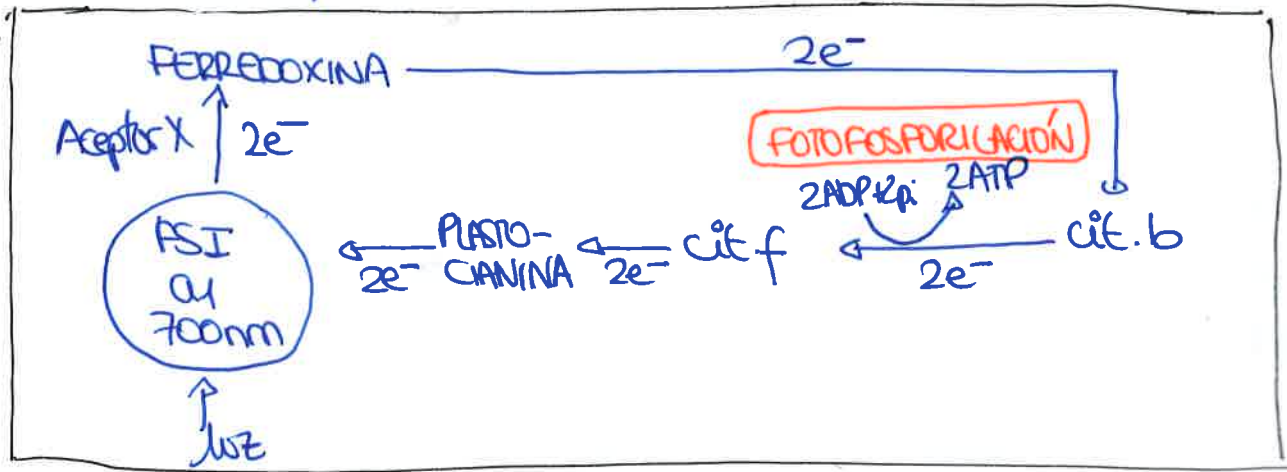 FERREDOXINA
2e⁻
Aceptor X
2e⁻
FOTOFOSFORILACIÓN
2ADP+2pi
2ATP
PSI
a1
700nm
2e⁻
PLASTO-
CIANINA
2e⁻
cit.f
2e⁻
cit.b
luz